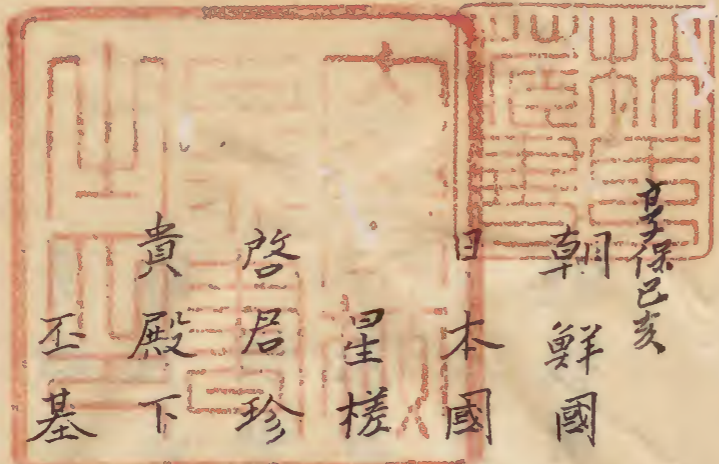 享保己亥
朝鮮國
日本國
星槎
啓居珍
貴殿下
丕基